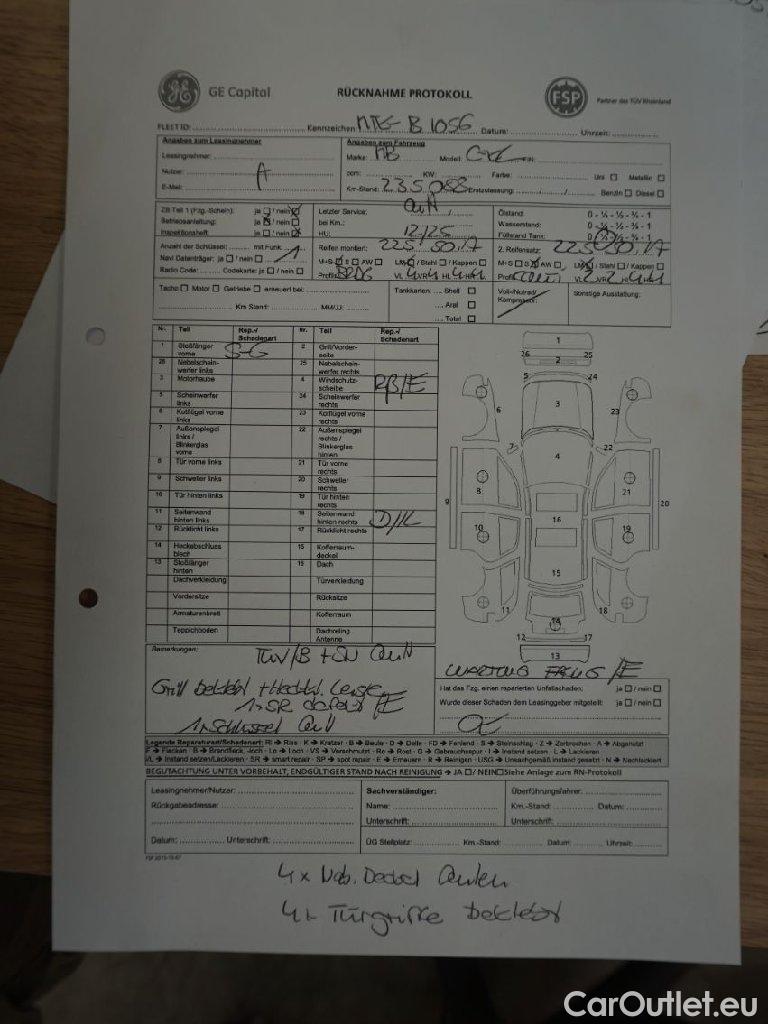 GE Capital
RÜCKNAHME PROTOKOLL
FSP
Partner des TÜV Rheinland
FLEET ID: Kennzeichen B 1056 Datum: Uhrzeit:
Angaben zum Leasingnehmer
Angaben zum Fahrzeug
Leasingnehmer:
Marke: MB Model:
Nutzer: A
ccm: KW: Farbe: Uni Metallic
E-Mail:
Km-Stand: 235.088 Erstzulassung: Benzin Diesel
ZB Teil 1 (Fzg.-Schein): ja / nein
Letzter Service:
Ölstand 0 - ¼ - ½ - ¾ - 1
Betriebsanleitung: ja / nein
bei Km.:
Wasserstand: 0 - ¼ - ½ - ¾ - 1
Inspektionsheft: ja / nein
HU: 12/25
Füllstand Tank: 0 - ¼ - ½ - ¾ - 1
Anzahl der Schlüssel: mit Funk 1
Reifen montiert: 225/50.17
2. Reifensatz: 225/50.17
Navi Datenträger: ja / nein
M+S S AW LM / Stahl / Kappen
M+S S AW LM / Stahl / Kappen
Radio Code: Codekarte: ja / nein
Profil:
Profil:
Tacho Motor Getriebe erneuert bei:
Km Stand: MM/JJ:
Tankkarten: Shell
Aral
Total
Voll-/Notrad/
Kompressor:
sonstige Ausstattung:
Nr. Teil Rep./ Schadenart Nr. Teil Rep./ Schadenart
1 Stoßfänger vorne S-G 2 Grill/Vorderseite
26 Nebelscheinwerfer links 25 Nebelscheinwerfer rechts
3 Motorhaube 4 Windschutzscheibe RB/E
5 Scheinwerfer links 24 Scheinwerfer rechts
6 Kotflügel vorne links 23 Kotflügel vorne rechts
7 Außenspiegel links / Blinkerglas vorne 22 Außenspiegel rechts / Blinkerglas hinten
8 Tür vorne links 21 Tür vorne rechts
9 Schweller links 20 Schweller rechts
10 Tür hinten links 19 Tür hinten rechts
11 Seitenwand hinten links 18 Seitenwand hinten rechts D/IL
12 Rücklicht links 17 Rücklicht rechts
14 Heckabschlussblech 15 Kofferraumdeckel
13 Stoßfänger hinten 16 Dach
Dachverkleidung Türverkleidung
Vordersitze Rücksitze
Armaturenbrett Kofferraum
Teppichboden Dachreling Antenne
1
26 2 25
5 24
6 3 23
7 22
4
8 21
9 20
16
10 19
15
11 18
14
12 17
13
Bemerkungen:
TÜV/B
Grill beklebt
1x SR defekt /E
1x Schlüssel
WARTUNG /E
Hat das Fzg. einen reparierten Unfallschaden: ja / nein
Wurde dieser Schaden dem Leasinggeber mitgeteilt: ja / nein
BEGUTACHTUNG UNTER VORBEHALT, ENDGÜLTIGER STAND NACH REINIGUNG → JA / NEIN Siehe Anlage zum RN-Protokoll
Leasingnehmer/Nutzer:
Sachverständiger:
Überführungsfahrer:
Rückgabeadresse:
Name:
Km.-Stand: Datum:
Unterschrift:
Unterschrift:
Datum: Unterschrift:
ÜG Stellplatz: Km.-Stand: Datum: Uhrzeit:
4x Nab. Deckel
4x Türgriffe beklebt
CarOutlet.eu